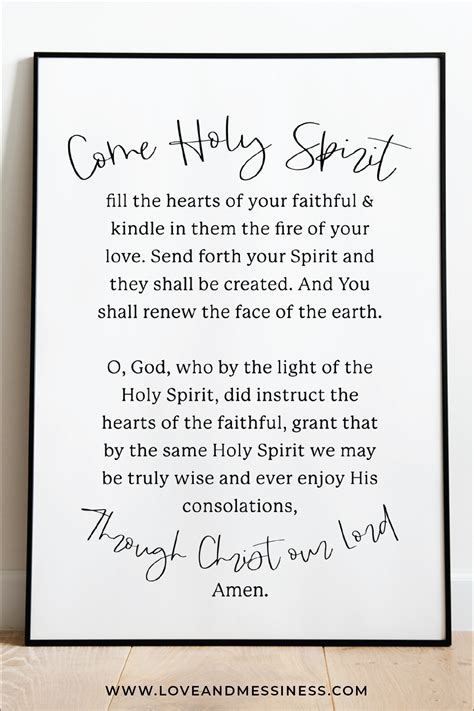 Come Holy Spirit
fill the hearts of your faithful &
kindle in them the fire of your
love. Send forth your Spirit and
they shall be created. And You
shall renew the face of the earth.
O, God, who by the light of the
Holy Spirit, did instruct the
hearts of the faithful, grant that
by the same Holy Spirit we may
be truly wise and ever enjoy His
consolations,
Through Christ our Lord
Amen.
WWW.LOVEANDMESSINESS.COM